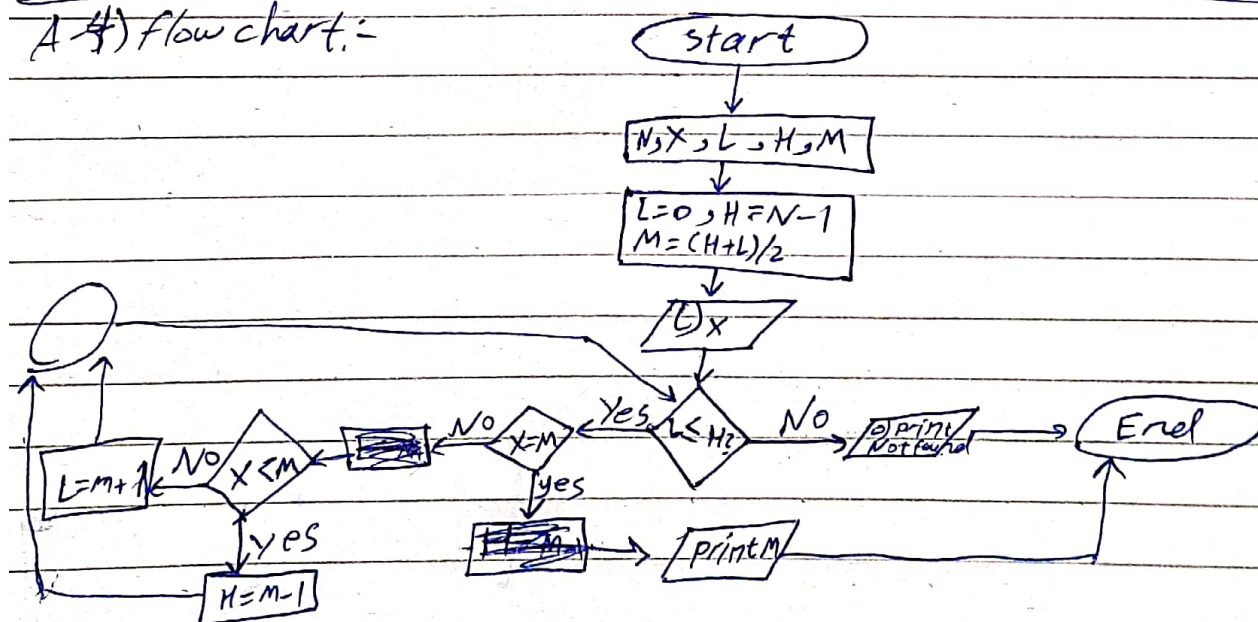 flow chart:-
start
N,X,L,H,M
L=0,H=N-1
M=(H+L)/2
X
L≤H?
Yes
NO
print
Not found
End
X=M
NO
yes
X<M
NO
L=m+1
yes
H=M-1
print M